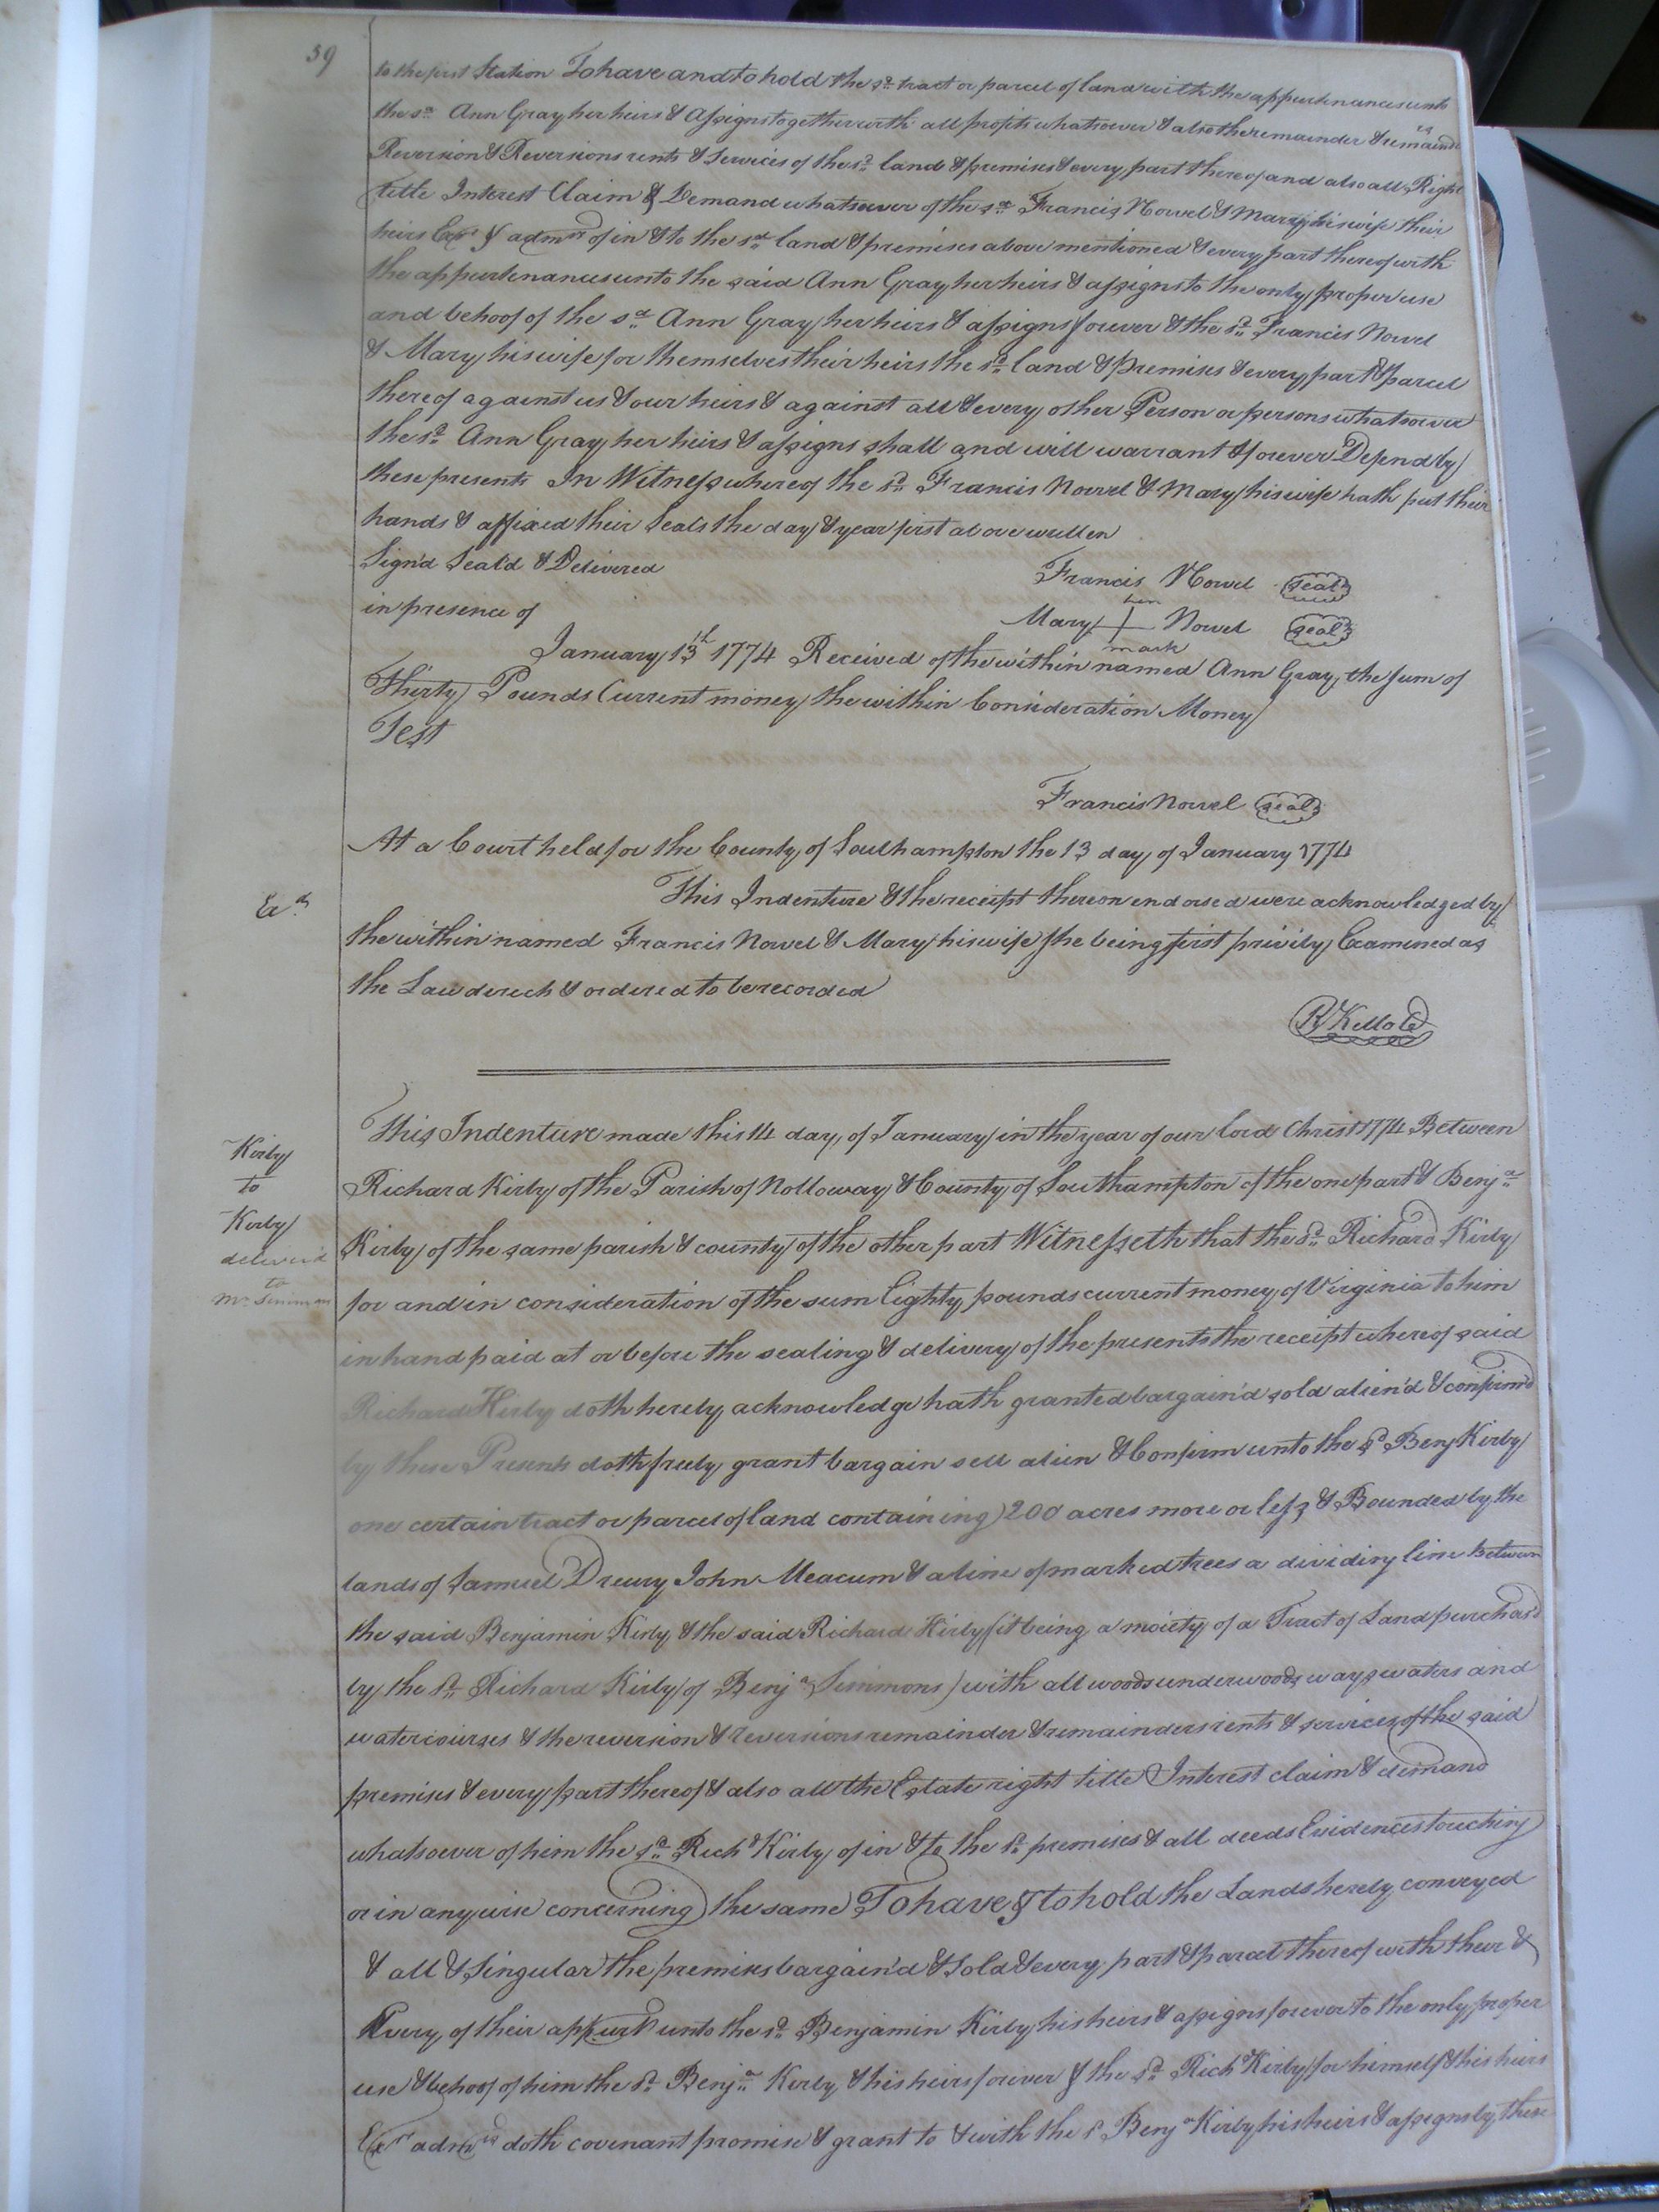 39
to the first Station To have and to hold the sd. tract or parcel of land with the appurtenances unto
the sd. Ann Gray her heirs & Assigns together with all profits whatsoever & also the remainder & remaindrs
Reversion & Reversions rents & services of the sd. land & premises & every part thereof and also all Right
title Interest Claim & Demand whatsoever of the sd. Francis Nowel & Mary his wife their
heirs Exrs & admrs of in & to the sd. land & premises above mentioned & every part thereof with
the appurtenances unto the said Ann Gray her heirs & assigns to the only proper use
and behoof of the sd. Ann Gray her heirs & assigns forever & the sd. Francis Nowel
& Mary his wife for themselves their heirs the sd. land & Premises & every part & parcel
thereof against us & our heirs & against all & every other Person or persons whatsoever
the sd. Ann Gray her heirs & assigns shall and will warrant & forever Defend by
these presents In Witness whereof the sd. Francis Nowel & Mary his wife hath put their
hands & affixed their Seals the day & year first above written
Sign'd Seal'd & Delivered
Francis Nowel seal
in presence of
her
Mary + Nowel seal
mark
January 13th 1774 Received of the within named Ann Gray the sum of
Thirty Pounds Current money the within Consideration Money
Test
Francis Nowel seal
At a Court held for the County of Southampton the 13 day of January 1774
This Indenture & the receipt thereon endorsed were acknowledged by
Exd
the within named Francis Nowel & Mary his wife she being first privily Examined as
the Law directs & ordered to be recorded
R Kello C
This Indenture made this 14 day of January in the year of our lord Christ 1774 Between
Kirby
to
Kirby
deliver'd
to
Mr. Simmons
Richard Kirby of the Parish of Nolloway & County of Southampton of the one part & Benja.
Kirby of the same parish & county of the other part Witnesseth that the sd. Richard Kirby
for and in consideration of the sum Eighty pounds current money of Virginia to him
in hand paid at or before the sealing & delivery of the presents the receipt whereof said
Richard Kirby doth hereby acknowledge hath granted bargain'd sold alien'd & confirm'd
by these Presents doth freely grant bargain sell alien & Confirm unto the sd Benj Kirby
one certain tract or parcel of land containing 200 acres more or less & Bounded by the
lands of Samuel Drewry John Meacum & a line of marked trees a dividing line between
the said Benjamin Kirby & the said Richard Kirby (it being a moiety of a Tract of Land purchas'd
by the sd. Richard Kirby of Benja Simmons) with all woods underwoods ways waters and
watercourses & the reversion & reversions remainder & remainders rents & services of the said
premises & every part thereof & also all the Estate right title Interest claim & demand
whatsoever of him the sd. Richd Kirby of in & to the sd. premises & all deeds Evidences touching
or in anywise concerning the same To have & to hold the Lands hereby conveyed
& all & Singular the premises bargain'd & sold & every part & parcel thereof with their &
Every of their appurts unto the sd. Benjamin Kirby his heirs & assigns forever to the only proper
use & behoof of him the sd. Benja. Kirby & his heirs forever & the sd. Richd Kirby for himself & his heirs
Exrs admrs doth covenant promise & grant to & with the s Benja Kirby his heirs & assigns by these